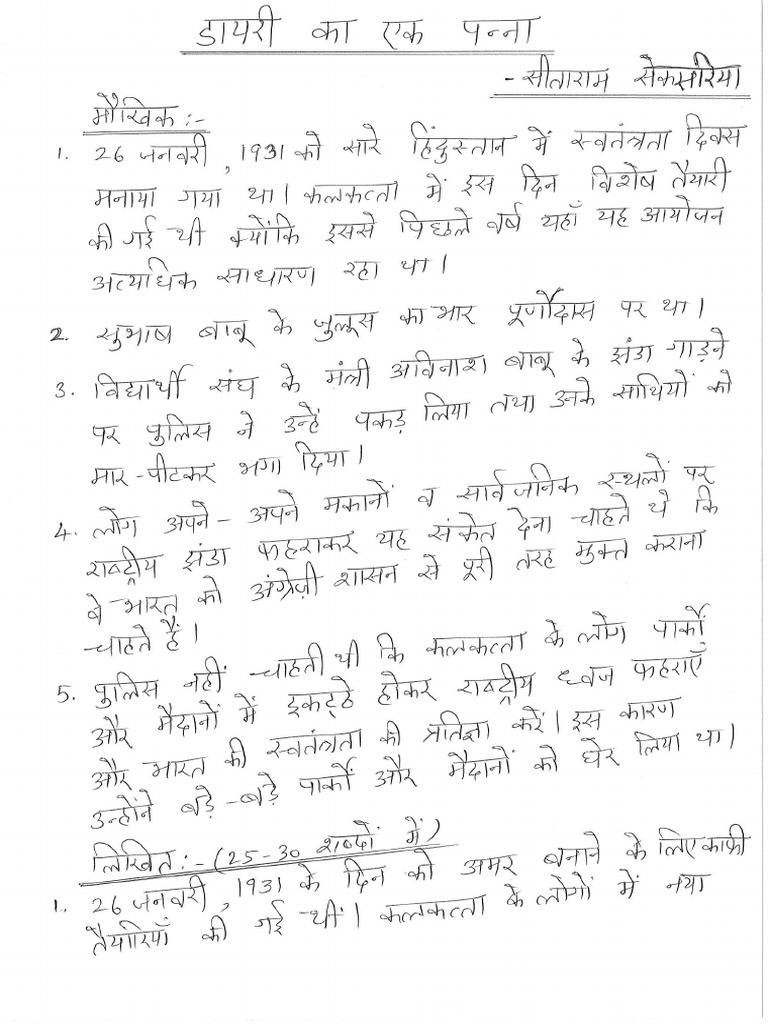 डायरी का एक पन्ना
- सीताराम सेकसरिया
मौखिक :-
1. 26 जनवरी, 1931 को सारे हिंदुस्तान में स्वतंत्रता दिवस
मनाया गया था। कलकत्ता में इस दिन विशेष तैयारी
की गई थी क्योंकि इससे पिछले वर्ष यहाँ यह आयोजन
अत्याधिक साधारण रहा था।
2. सुभाष बाबू के जुलूस का भार पूर्णोदास पर था।
3. विद्यार्थी संघ के मंत्री अविनाश बाबू के झंडा गाड़ने
पर पुलिस ने उन्हें पकड़ लिया तथा उनके साथियों को
मार-पीटकर भगा दिया।
4. लोग अपने-अपने मकानों व सार्वजनिक स्थलों पर
राष्ट्रीय झंडा फहराकर यह संकेत देना चाहते थे कि
वे भारत को अंग्रेज़ी शासन से पूरी तरह मुक्त कराना
चाहते हैं।
5. पुलिस नहीं चाहती थी कि कलकत्ता के लोग पार्कों
और मैदानों में इकट्ठे होकर राष्ट्रीय ध्वज फहराएँ
और भारत की स्वतंत्रता की प्रतिज्ञा करें। इस कारण
उन्होंने बड़े-बड़े पार्कों और मैदानों को घेर लिया था।
लिखित :- (25-30 शब्दों में)
1. 26 जनवरी, 1931 के दिन को अमर बनाने के लिए काफ़ी
तैयारियाँ की गई थीं। कलकत्ता के लोगों में नया